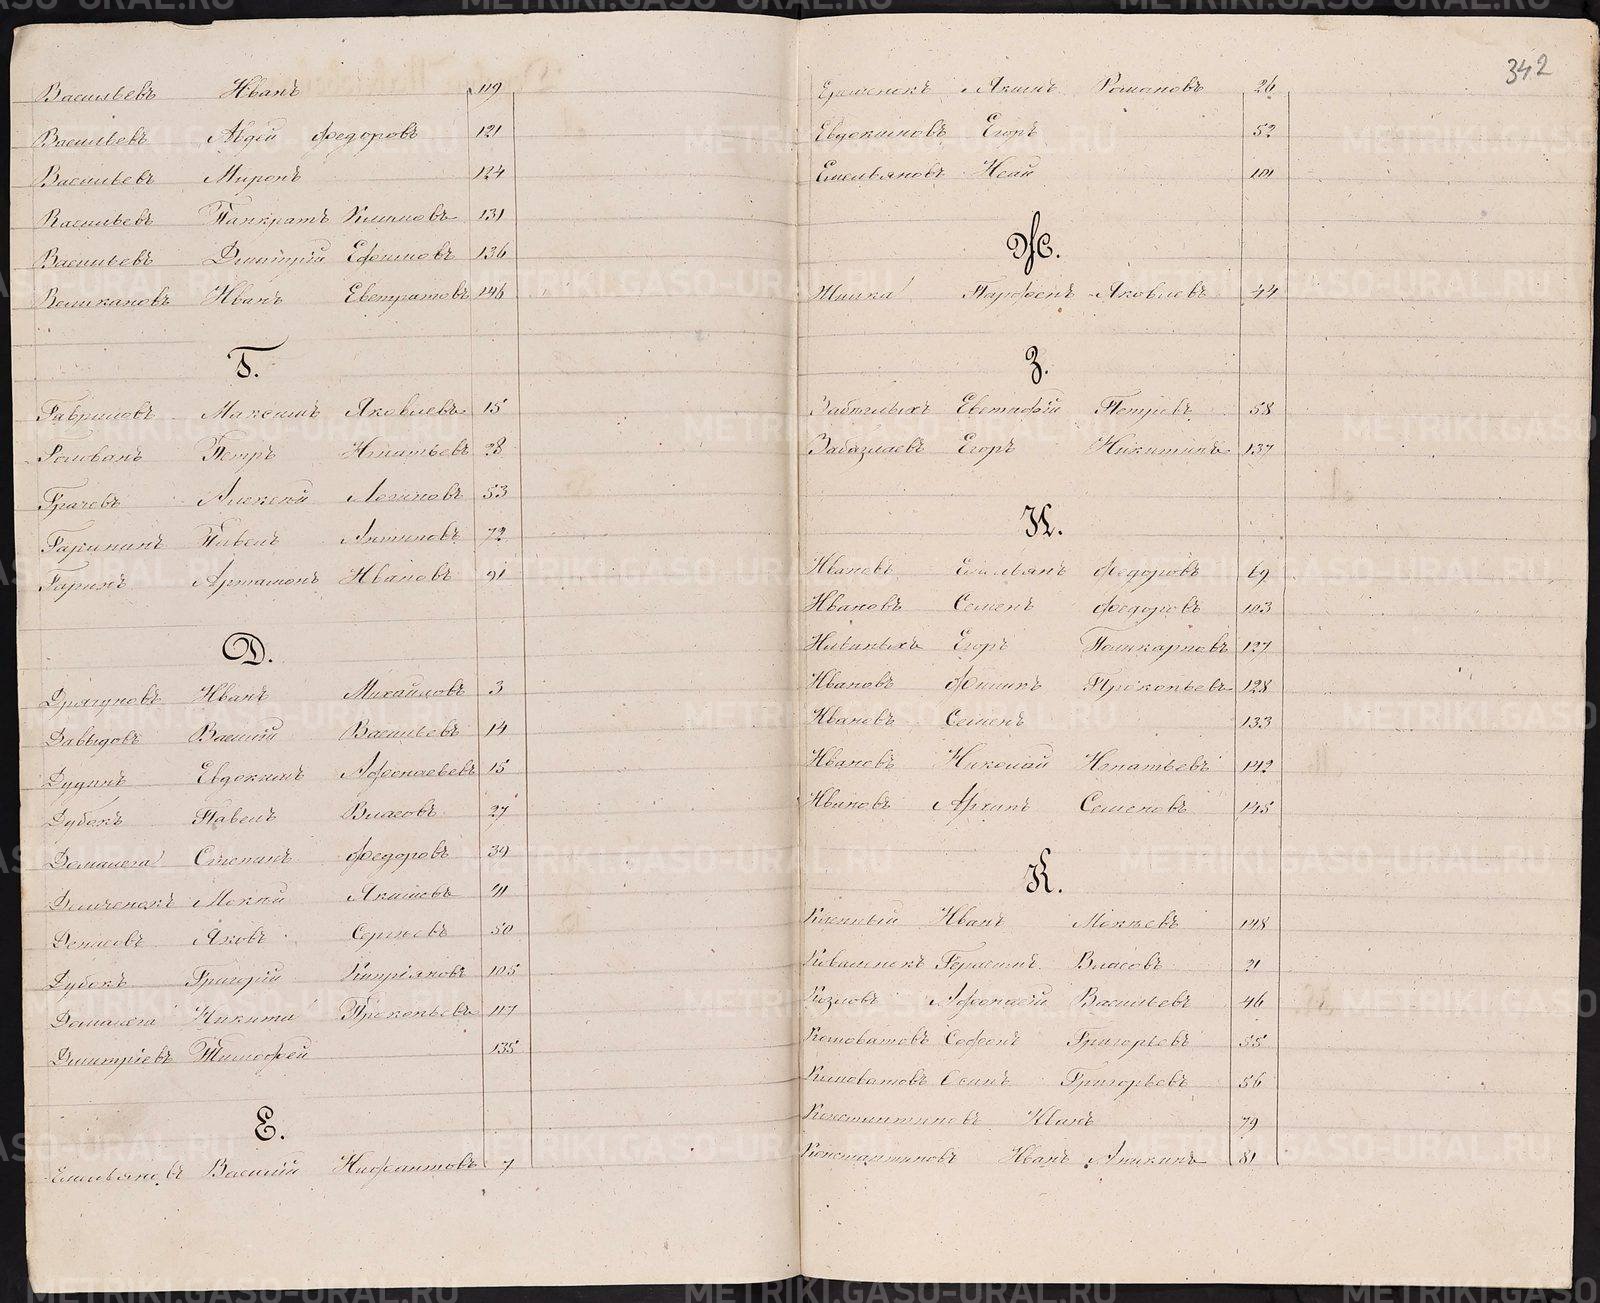 Васильевъ Иванъ 119
Васильевъ Авдей Федоровъ 121
Васильевъ Миронъ 124
Васильевъ Панкратъ Климовъ 131
Васильевъ Дмитрій Ефимовъ 136
Великановъ Иванъ Евстратовъ 146
Г.
Гавриловъ Максимъ Яковлевъ 15
Голованъ Петръ Игнатьевъ 28
Грачевъ Алексей Логиновъ 53
Гарипинъ Павелъ Антиповъ 72
Гаринъ Артамонъ Ивановъ 91
Д.
Драгуновъ Иванъ Михайловъ 3
Давыдовъ Василій Васильевъ 14
Дудинъ Евдокимъ Афонасьевъ 15
Дубокъ Павелъ Власовъ 27
Домашега Степанъ Федоровъ 39
Демченокъ Мокий Якимовъ 41
Денисовъ Яковъ Сергеевъ 50
Дубокъ Григорій Кипріяновъ 105
Домашега Никита Прокопьевъ 117
Дмитріевъ Тимофей 135
Е.
Емельяновъ Василій Нифантовъ 7
342
Ермаченокъ Якимъ Романовъ 26
Евдокимовъ Егоръ 52
Емельяновъ Исай 101
Ж.
Жишка Парфенъ Яковлевъ 44
З.
Евстафій Петровъ 58
Забазлаевъ Егоръ Никитинъ 137
И.
Ивановъ Емельянъ Федоровъ 69
Ивановъ Семенъ Федоровъ 103
Ильиныхъ Егоръ Поликарповъ 127
Ивановъ Филипъ Прокопьевъ 128
Ивановъ Семенъ 133
Ивановъ Николай Игнатьевъ 142
Ивановъ Архипъ Семеновъ 145
К.
Иванъ Мокеевъ 148
Ковалонокъ Герасимъ Власовъ 21
Козловъ Афонасей Васильевъ 46
Коноватовъ Софонъ Григорьевъ 55
Коноватовъ Осипъ Григорьевъ 56
Константиновъ Иванъ 79
Константиновъ Иванъ Аникинъ 81
METRIKI.GASO-URAL.RU